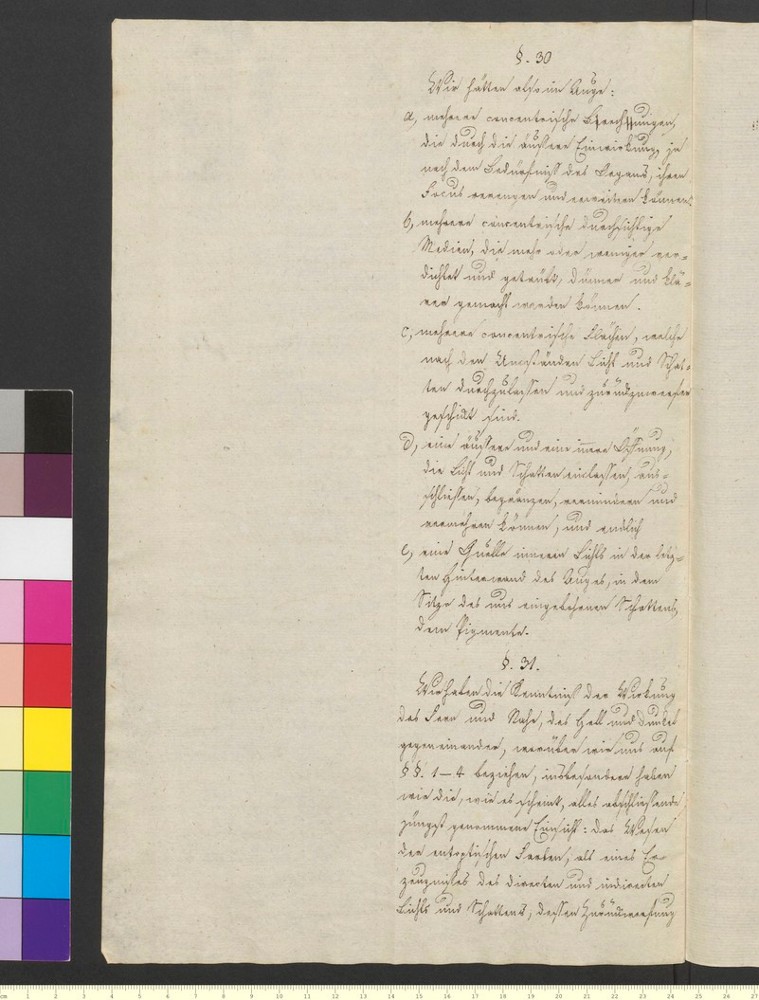 §. 30
Wir hätten also im Auge:
a, mehrere concentrische Brechungen,
die durch die äußere Einwirkung, je
nach dem Bedürfniß des Organs, ihren
Focus verengen und erweitern können.
b, mehrere concentrische durchsichtige
Medien, die mehr oder weniger ver=
dichtet und getrübt, dünner und klä=
rer gemacht werden können.
c, mehrere concentrische Flächen, welche
nach den Umständen Licht und Schat=
ten durchzulassen und zurückzuwerfen
geschickt sind.
d, eine äußere und eine innere Öffnung,
die Licht und Schatten einlassen, aus=
schließen, begränzen, vermindern und
vermehren können, und endlich
e, eine Quelle inneren Lichts in der letz=
ten Hinterwand des Auges, in dem
Sitze des uns eingebohrnen Schattens,
dem Pigmente.
§. 31.
Wir haben die Kenntniß der Wirkung
des Fern und Nahe, des Hell und Dunkel
gegen einander, worüber wir uns auf
§§. 1–4 beziehen, insbesondere haben
wir die, wie es scheint, alles abschließende
jüngst gewonnene Einsicht: das Wesen
der entoptischen Farben, als eines Er=
zeugnisses des directen und indirecten
Lichts und Schattens, dessen Zurückwerfung